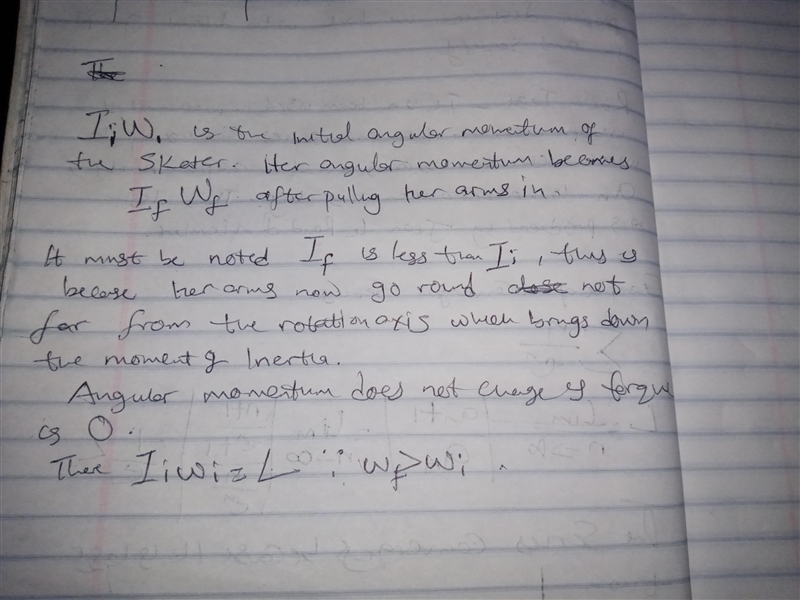 IiWi is the initial angular momentum of
the Skater. Her angular momentum becomes
If Wf after pulling her arms in.
It must be noted If is less than Ii, this is
because her arms now go round close not
far from the rotation axis which brings down
the moment of Inertia.
Angular momentum does not change if torque
is 0.
Then Iiwi = L ∵ wf > wi.